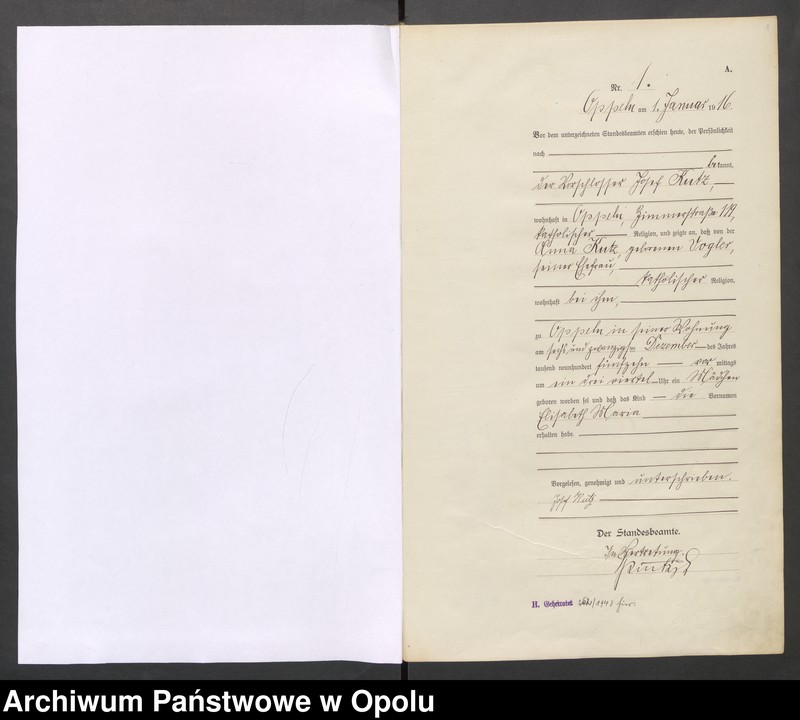 A.
Nr. 1.
Oppeln am 1. Januar 1916.
Vor dem unterzeichneten Standesbeamten erschien heute, der Persönlichkeit
nach
bekannt,
der Vorschlosser Josef Kutz,
wohnhaft in Oppeln, Zimmerstraße
katholischer Religion, und zeigte an, daß von der
Anna Kutz, geborenen Vogler,
seiner Ehefrau,
katholischer Religion,
wohnhaft bei ihm,
zu Oppeln in seiner Wohnung
am sechs und zwanzigsten Dezember des Jahres
tausend neunhundert fünfzehn vor mittags
um ein drei viertel Uhr ein Mädchen
geboren worden sei und daß das Kind die Vornamen
Elisabeth Maria
erhalten habe.
Vorgelesen, genehmigt und unterschrieben.
Josef Kutz
Der Standesbeamte.
In Vertretung.
H. Geheiratet /1943 hier.
Archiwum Państwowe w Opolu